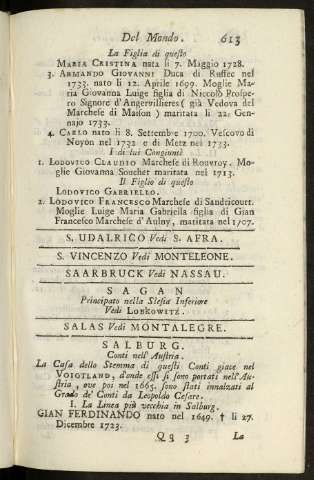 Del Mondo. 613
La Figlia di questo
MARIA CRISTINA nata li 7. Maggio 1728.
3. ARMANDO GIOVANNI Duca di Ruffec nel
1733. nato li 12. Aprile 1699. Moglie Ma-
ria Giovanna Luige figlia di Niccolò Prospe-
ro Signore d'Angervillieres (già Vedova del
Marchese di Maison) maritata li 22. Gen-
najo 1733.
4. CARLO nato li 8. Settembre 1700. Vescovo di
Noyon nel 1732 e di Metz nel 1733.
I di lui Congiunti
1. LODOVICO CLAUDIO Marchese di Rouvroy. Mo-
glie Giovanna Souchet maritata nel 1713.
Il Figlio di questo
LODOVICO GABRIELLO.
2. LODOVICO FRANCESCO Marchese di Sandricourt.
Moglie Luige Maria Gabriella figlia di Gian
Francesco Marchese d'Aulny, maritata nel 1707.
S. UDALRICO Vedi S. AFRA.
S. VINCENZO Vedi MONTELEONE.
SAARBRUCK Vedi NASSAU.
SAGAN
Principato nella Slesia Inferiore
Vedi LOBKOWITZ.
SALAS Vedi MONTALEGRE.
SALBURG.
Conti nell'Austria.
La Casa dello Stemma di questi Conti giace nel
VOIGTLAND, d'onde essi si sono portati nell'Au-
stria, ove poi nel 1665. sono stati innalzati al
Grado de' Conti da Leopoldo Cesare.
I. La Linea più vecchia in Salburg.
GIAN FERDINANDO nato nel 1649. † li 27.
Dicembre 1723.
Qq 3 La